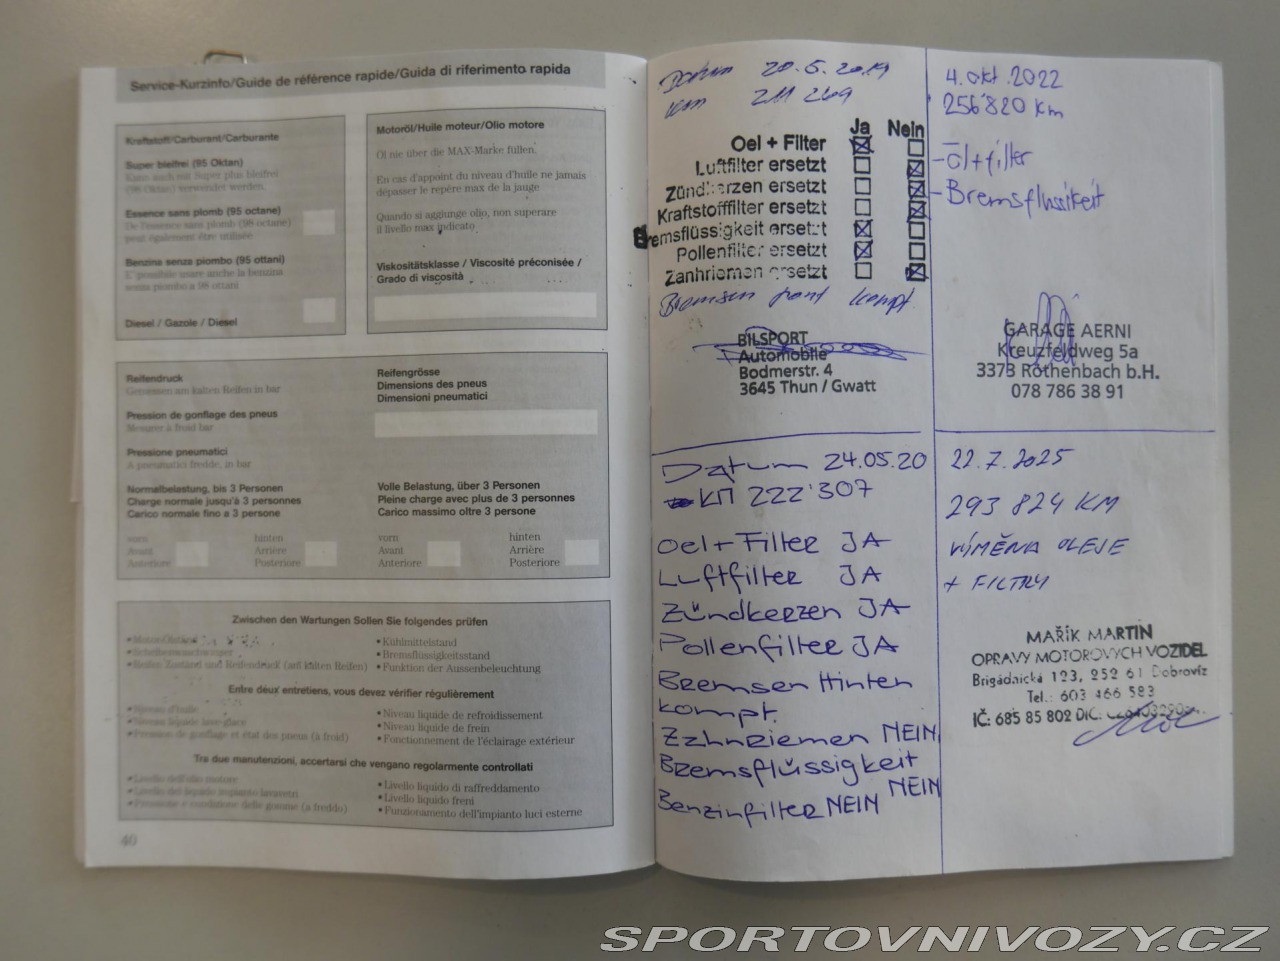 Service-Kurzinfo/Guide de référence rapide/Guida di riferimento rapida
Kraftstoff/Carburant/Carburante
Super bleifrei (95 Oktan)
Kann auch mit Super plus bleifrei
(98 Oktan) verwendet werden.
Essence sans plomb (95 octane)
De l'essence sans plomb (98 octane)
peut également être utilisée
Benzina senza piombo (95 ottani)
E' possibile usare anche la benzina
senza piombo a 98 ottani
Diesel / Gazole / Diesel
Motoröl/Huile moteur/Olio motore
Öl nie über die MAX-Marke füllen.
En cas d'appoint du niveau d'huile ne jamais
dépasser le repère max de la jauge
Quando si aggiunge olio, non superare
il livello max indicato
Viskositätsklasse / Viscosité préconisée /
Grado di viscosità
Reifendruck
Gemessen am kalten Reifen in bar
Pression de gonflage des pneus
Mesurer à froid bar
Pressione pneumatici
A pneumatici freddi, in bar
Reifengrösse
Dimensions des pneus
Dimensioni pneumatici
Normalbelastung, bis 3 Personen
Charge normale jusqu'à 3 personnes
Carico normale fino a 3 persone
Volle Belastung, über 3 Personen
Pleine charge avec plus de 3 personnes
Carico massimo oltre 3 persone
vorn hinten vorn hinten
Avant Arrière Avant Arrière
Anteriore Posteriore Anteriore Posteriore
Zwischen den Wartungen Sollen Sie folgendes prüfen
• Motor-Ölstand
• Scheibenwaschwasser
• Reifen Zustand und Reifendruck (auf kalten Reifen)
• Kühlmittelstand
• Bremsflüssigkeitsstand
• Funktion der Aussenbeleuchtung
Entre deux entretiens, vous devez vérifier régulièrement
• Niveau d'huile
• Niveau liquide lave-glace
• Pression de gonflage et état des pneus (à froid)
• Niveau liquide de refroidissement
• Niveau liquide de frein
• Fonctionnement de l'éclairage extérieur
Tra due manutenzioni, accertarsi che vengano regolarmente controllati
• Livello dell'olio motore
• Livello del liquido impianto lavavetri
• Pressione e condizione delle gomme (a freddo)
• Livello liquido di raffreddamento
• Livello liquido freni
• Funzionamento dell'impianto luci esterne
40
Datum 20.5.2019
km 211 269
Ja Nein
Oel + Filter
Luftfilter ersetzt
Zündkerzen ersetzt
Kraftstofffilter ersetzt
Bremsflüssigkeit ersetzt
Pollenfilter ersetzt
Zanhriemen ersetzt
Bremsen front kompt.
BILSPORT
Automobile
Bodmerstr. 4
3645 Thun / Gwatt
4. okt. 2022
256'820 km
- Öl+filter
- Bremsflüssikeit
GARAGE AERNI
Kreuzfeldweg 5a
3373 Röthenbach b.H.
078 786 38 91
Datum 24.05.20
KM 222'307
Oel+Filter JA
Luftfilter JA
Zündkerzen JA
Pollenfilter JA
Bremsen Hinten
kompt.
Zahnriemen NEIN
Bremsflüssigkeit
NEIN
Benzinfilter NEIN
22.7.2025
293 824 KM
VÝMĚNA OLEJE
+ FILTRY
MAŘÍK MARTIN
OPRAVY MOTOROVÝCH VOZIDEL
Brigádnická 123, 252 61 Dobrovíz
Tel.: 603 466 583
IČ: 685 85 802 DIČ:
SPORTOVNIVOZY.CZ